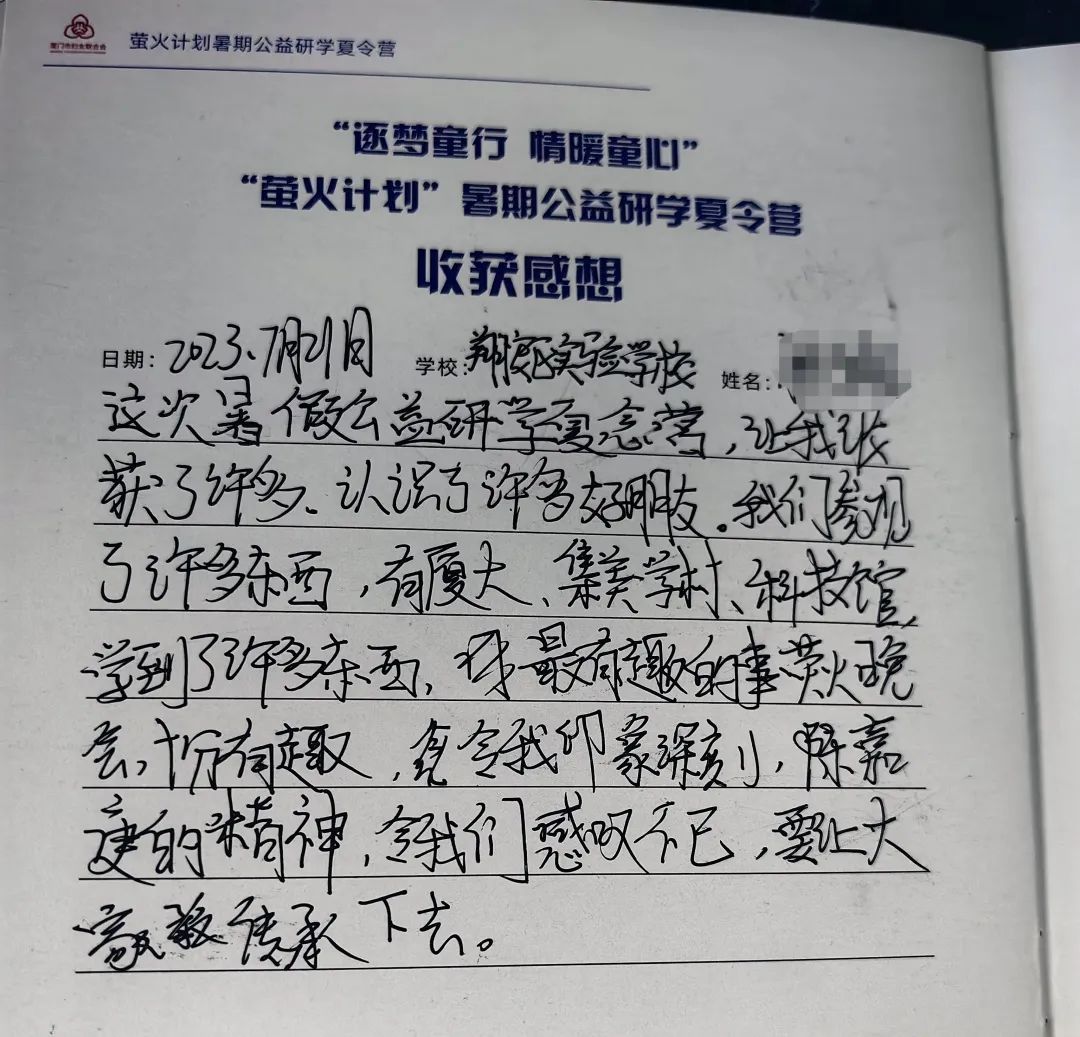 厦门市妇女联合会
萤火计划暑期公益研学夏令营
“逐梦童行 情暖童心”
“萤火计划”暑期公益研学夏令营
收获感想
日期: 2023.7月21日 学校: 翔安实验学校 姓名:
这次暑假公益研学夏令营,让我收
获了许多、认识了许多好朋友。我们参观
了许多东西,有厦大、集美学村、科技馆,
学到了许多东西,我最有趣的事萤火晚
会,十分有趣,令我印象深刻,陈嘉
庚的精神,令我们感叹不已,要让大
家传承下去。